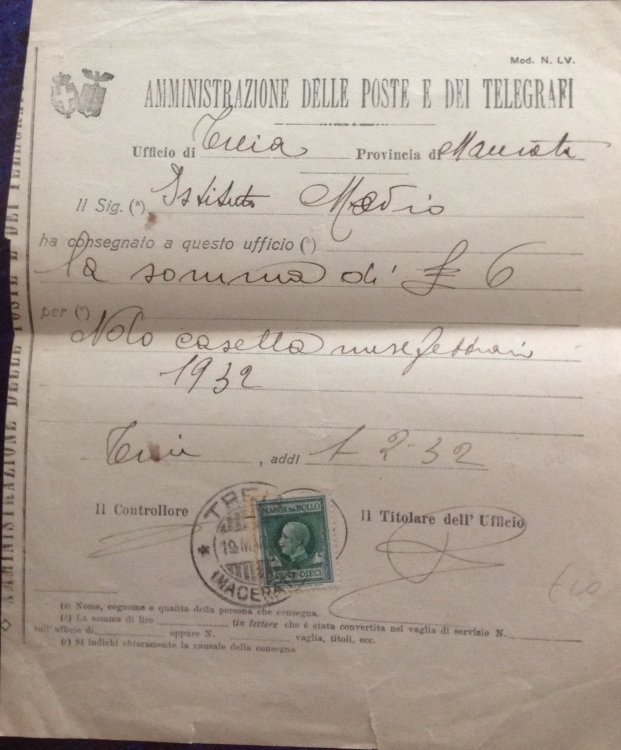 Mod. N. LV.
AMMINISTRAZIONE DELLE POSTE E DEI TELEGRAFI
Ufficio di Treia Provincia di Macerata
Il Sig. (ª) Istituto Medio
ha consegnato a questo ufficio (ᵇ)
la somma di £ 6
per (ᶜ)
Nolo casella mese febbraio
1932
Treia, addì 1-2-32
Il Controllore
Il Titolare dell' Ufficio
TREIA
MARCA DA BOLLO
(MACERA
(a) Nome, cognome e qualità della persona che consegna.
(b) La somma di lire (in lettere che è stata convertita nel vaglia di servizio N.
sull'ufficio di oppure N. vaglia, titoli, ecc.
(c) Si indichi chiaramente la causale della consegna
AMMINISTRAZIONE DELLE POSTE E DEI TELEGRAFI